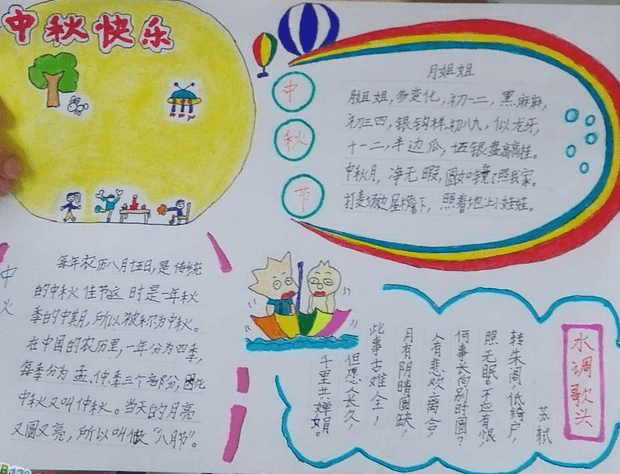 中秋快乐
中
秋
节
月姐姐
月姐姐,多变化,初一二,黑麻麻,
初三四,银钩样,初八九,似龙牙,
十一二,半边瓜,十五银盘高高挂。
中秋月,净无暇,圆如明镜照我家。
打麦场边屋檐下,照着地上小娃娃。
中
火
每年农历八月十五日,是传统
的中秋佳节这时是一年秋
季的中期,所以被称为中秋。
在中国的农历里,一年分为四季,
每季分为孟、仲、季三个部分,因此
中秋又叫仲秋。当天的月亮
又圆又亮,所以叫做“八月节”。
水调歌头
苏轼
转朱阁,低绮户,
照无眠。不应有恨,
何事长向别时圆?
人有悲欢离合,
月有阴晴圆缺,
此事古难全,
但愿人长久,
千里共婵娟。